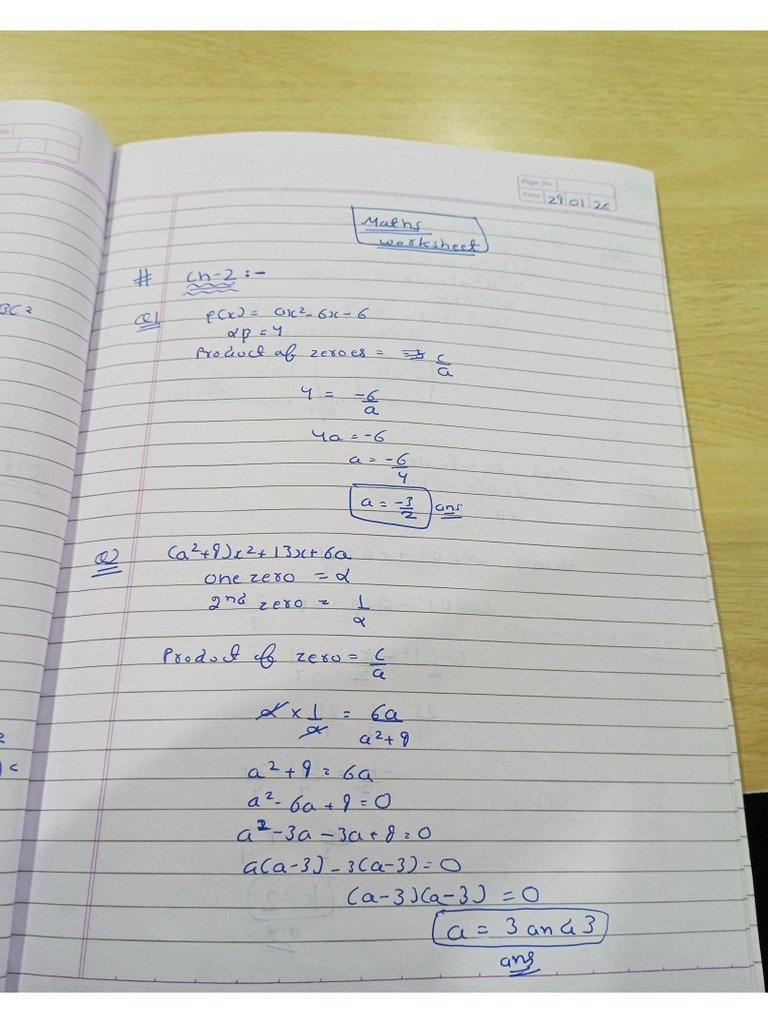 Page No.
Date 29 01 26
Maths
worksheet
# Ch-2 :-
Q1 p(x) = ax²-6x-6
αβ = 4
Product of zeroes = c/a
4 = -6/a
4a = -6
a = -6/4
a = -3/2 ans
Q2 (a²+9)x²+13x+6a
one zero = α
2nd zero = 1/α
Product of zero = c/a
α × 1/α = 6a/a²+9
a²+9 = 6a
a²-6a+9=0
a²-3a-3a+9=0
a(a-3)-3(a-3)=0
(a-3)(a-3) = 0
a = 3 and 3
ans
BC=